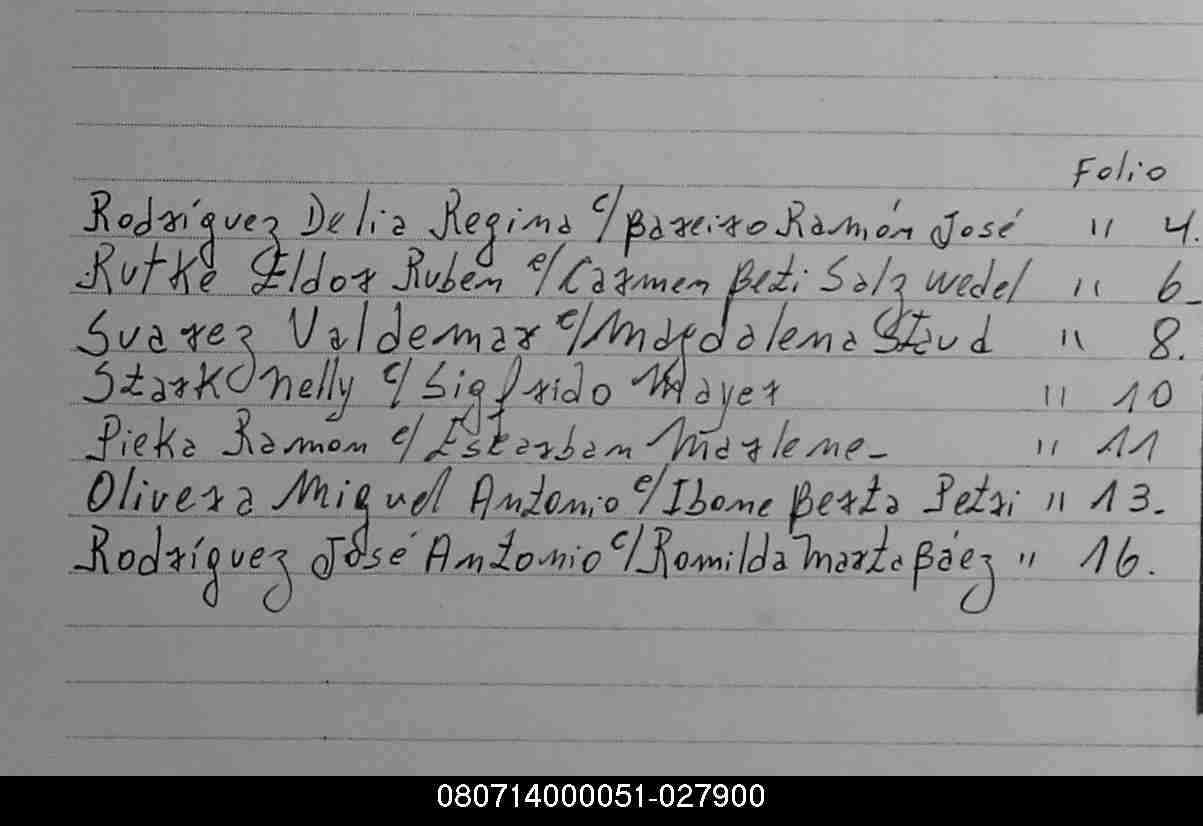 Folio
Rodríguez Delia Regina c/ Bareiro Ramón José " 4.
Rutke Eldor Ruben c/ Carmen Beti Salzwedel " 6-
Suarez Valdemar c/ Magdalena Staud " 8.
Stark Nelly c/ Sigfrido Mayer " 10
Pieka Ramon c/ Eskarban Marlene- " 11
Olivera Miguel Antonio c/ Ibone Berta Petri " 13.
Rodríguez José Antonio c/ Romilda Marta Báez " 16.
080714000051-027900